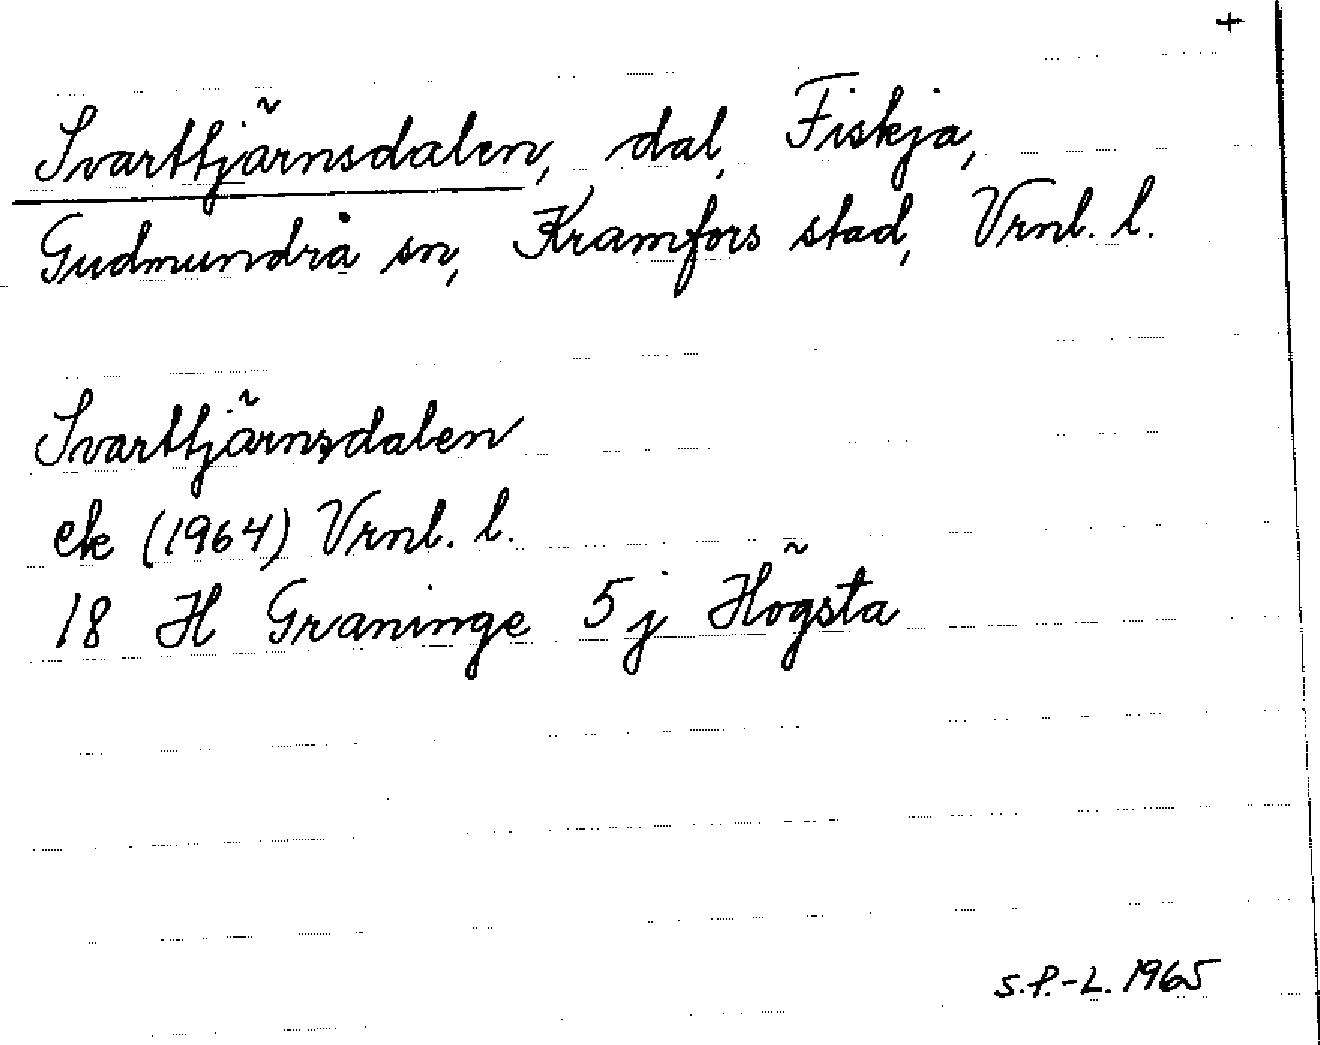 +
Svarttjärnsdalen, dal, Fiskja,
Gudmundrå sn, Kramfors stad, Vrnl. l.
Svarttjärnsdalen
ek (1964) Vrnl. l.
18 H Graninge 5 j Högsta
S.P.-L. 1965